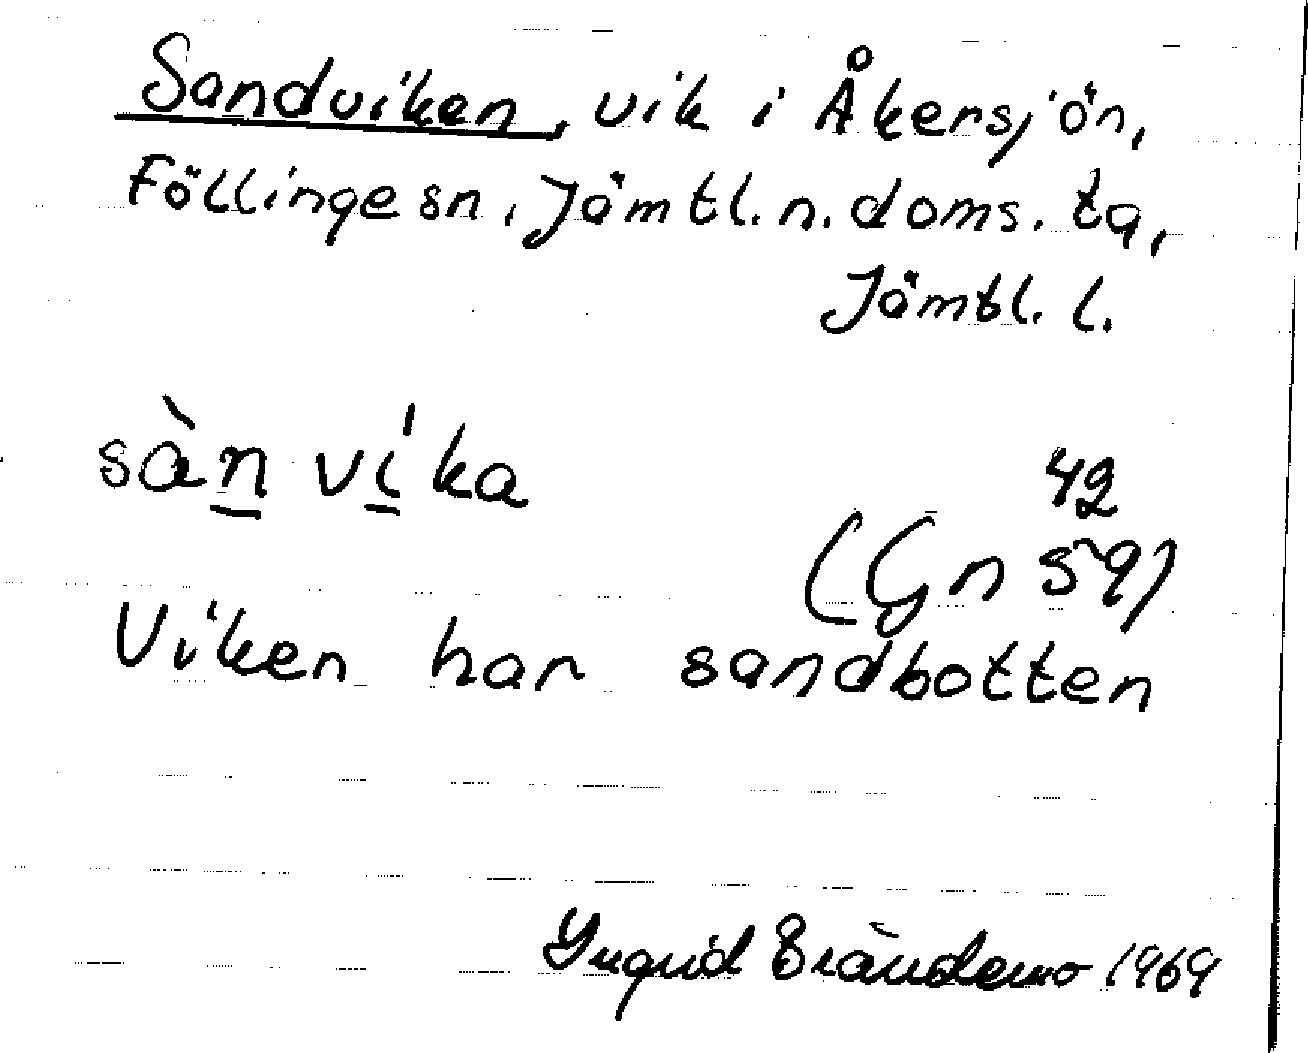 Sandviken, vik i Åkersjön,
Föllinge sn, Jämtl. n. doms. ta,
Jämtl. l.
sàn víka
42
(Gn 59)
Viken har sandbotten
Ingrid Brändemo 1969